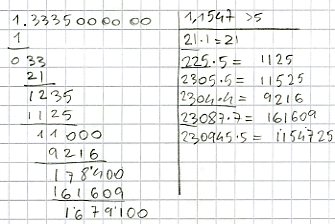 1.3335 00 00 00
1
0 33
21
1235
1125
11000
9216
178'400
161609
1'679'100
1,1547 >5
21·1=21
225·5= 1125
2305·5= 11525
2304·4= 9216
23087·7= 161609
230945·5= 1154725